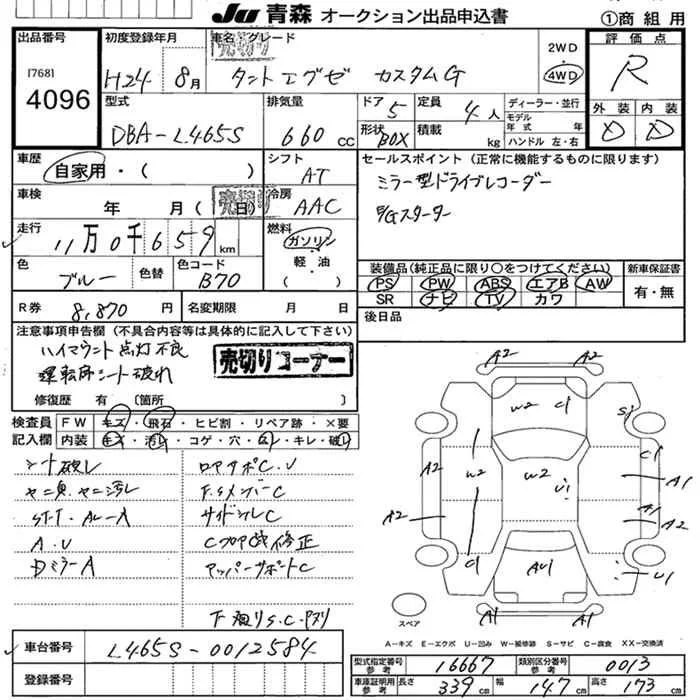 JU 青森 オークション出品申込書
①商 組 用
出品番号
[768]
4096
初度登録年月
H24 8月
車名 グレード
売切り
タント エグゼ カスタムG
2WD
4WD
評価点
R
外装 内装
D D
型式
DBA-L465S
排気量
660 cc
ドア 5
形状 BOX
定員 4人
積載 kg
ディーラー・並行
モデル 年式 年
ハンドル 左・右
車歴
自家用・( )
シフト
AT
セールスポイント(正常に機能するものに限ります)
ミラー型ドライブレコーダー
E/Gスターター
車検
年 月( 日)
売切り
冷房
AAC
走行
11万0千659km
燃料
ガソリン
軽・油
( )
色
ブルー
色替
色コード
B70
装備品(純正品に限り○をつけてください)
PS PW ABS エアB AW
SR ナビ TV カワ
新車保証書
有・無
R券 8,870円
名変期限 月 日
後日品
注意事項申告欄(不具合内容等は具体的に記入して下さい)
ハイマウント点灯不良
運転席シート破れ
売切りコーナー
修復歴 有 〔箇所 〕
検査員記入欄
FW キズ・飛石・ヒビ割・リペア跡・×要
内装 キズ・汚レ・コゲ・穴・ムレ・キレ・破レ
シート破レ
ヤニ臭.ヤニ汚レ
ST-T.ALーA
A.U
DミラーA
ロアサポC.U
F.SメンバーC
サイドシルC
Cフロア改修正
アッパーサポートC
下廻りS.C.
A2 A2
W2 C1
S1
C1
A2 W2 W2 U1 A1
A2 A1 A2
C1 AU1 U1
A1 A1
スペア
A-キズ E-エクボ U-凹み W-補修跡 S-サビ C-腐食 XX-交換済
車台番号
L465S-0012584
登録番号
型式指定番号 参考 16667
類別区分番号 参考 0013
車庫証明用 参考 長さ 339cm 幅 147cm 高さ 173cm